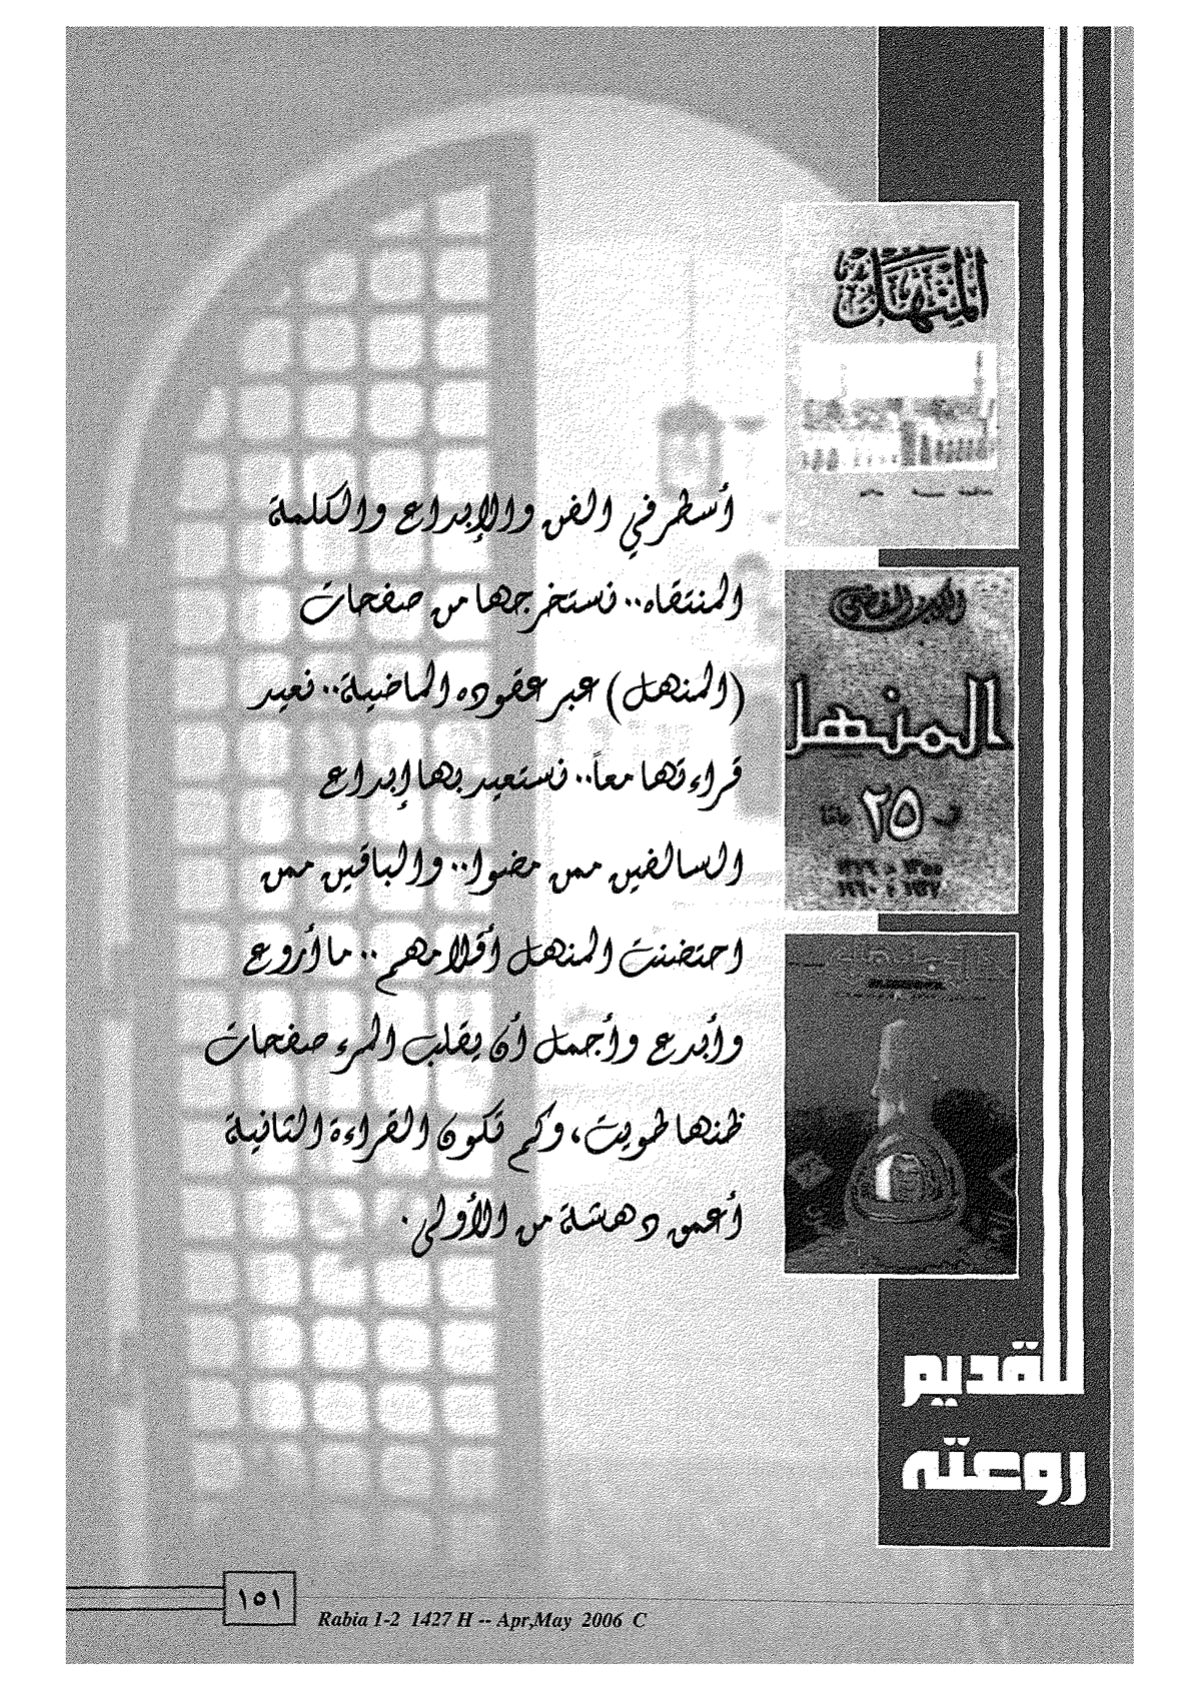 المنهل
أسطر في الفن والإبداع والكلمة
المنتقاه.. نستخرجها من صفحات
(المنهل) عبر عقوده الماضية.. نعيد
قراءتها معاً.. نستعيد بها إبداع
السالفين ممن مضوا.. والباقين ممن
احتضنت المنهل أقلامهم.. ما أروع
وأبدع وأجمل أن يقلب المرء صفحات
ظنها طويت، وكم تكون القراءة الثانية
أعمق دهشة من الأولى.
الكتاب الفضي
المنهل
٢٥
للقديم
روعته
١٥١
Rabia 1-2 1427 H -- Apr,May 2006 C